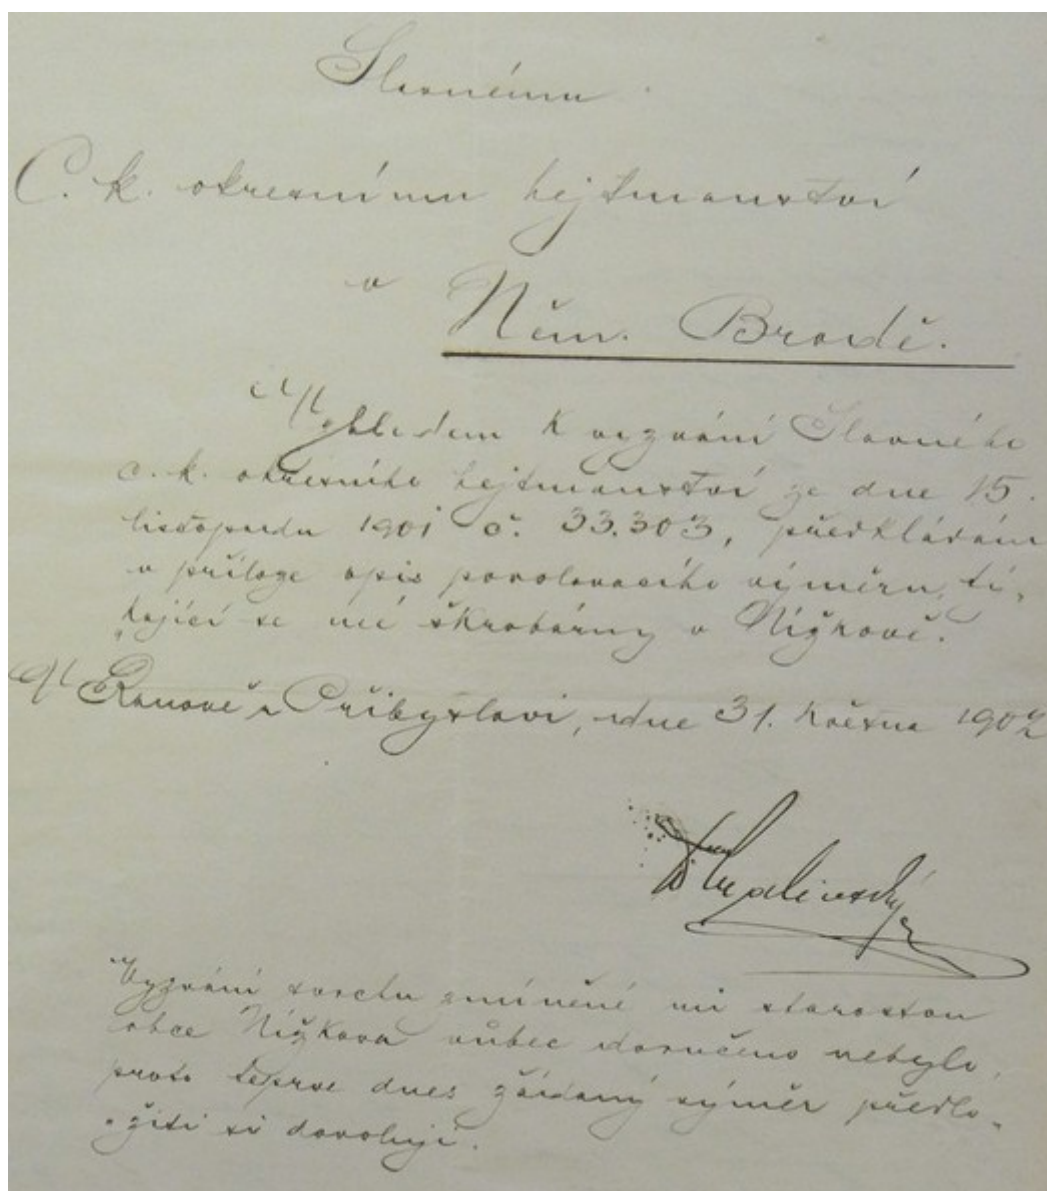 Slavnému
C. k. okresnímu hejtmanství
v
Něm. Brodě.
Vzhledem k vyzvání Slavného
c. k. okresního hejtmanství ze dne 15.
listopadu 1901 č. 33.303, předkládám
v příloze opis povolovacího výměru, tý-
kající se mé škrobárny v Nížkově.
V Ronově a Přibyslavi, dne 31. května 1902
Vyzvání svrchu zmíněné mi starostou
obce Nížkova vůbec doručeno nebylo,
proto teprve dnes žádaný výměr předlo-
žiti si dovoluji.